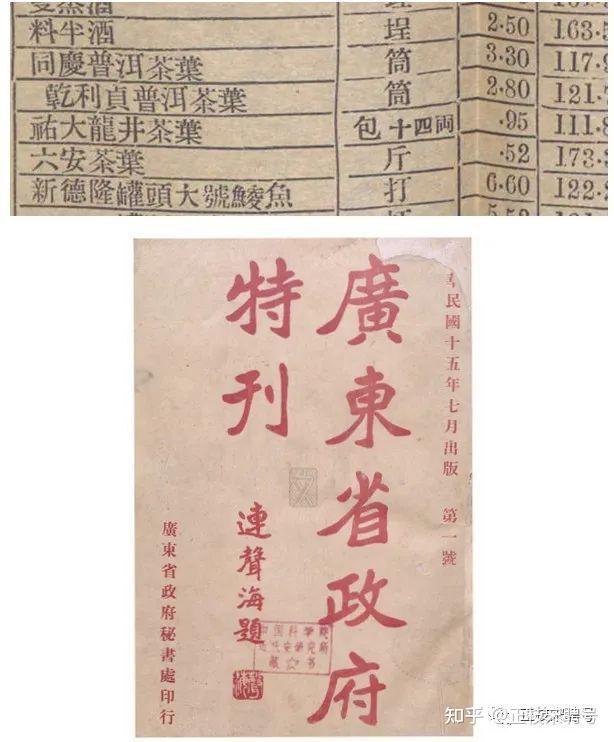 料半酒 埕 2.50 163.5
同慶普洱茶葉 筒 3.30 117.9
乾利貞普洱茶葉 筒 2.80 121.
祐大龍井茶葉 包十四両 .95 111.8
六安茶葉 斤 .52 173.3
新德隆罐頭大號鯪魚 打 6.60 122.2
民國十五年七月出版 第一號
廣東省政府
特刊
連聲海題
廣東省政府秘書處印行
知乎